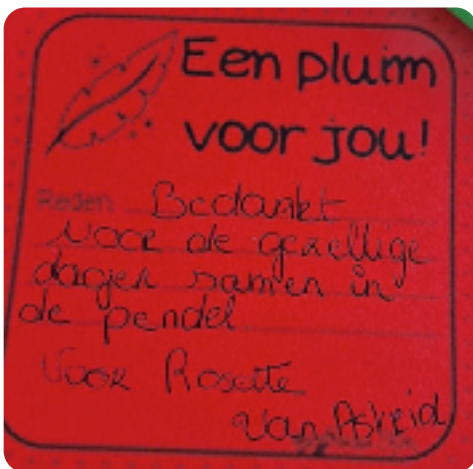 Een pluim
voor jou!
Reden: Bedankt
voor de gezellige
dagen samen in
de pendel
Voor Rosette
Van Astrid